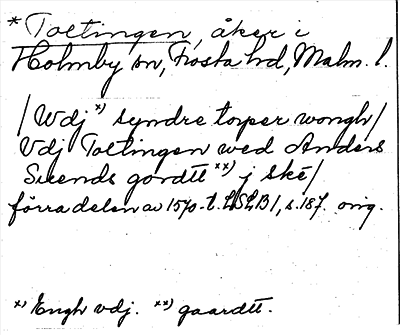 * Toetingen, åker i
Holmby sn, Frosta hd, Malm. l.
/ Wdj *) syndre torper wongh /
Vdj Toetingen wed Anders
Suends gordtt **) j ske /
förra delen av 1570-t. LSLB 1, s. 187. orig.
*) Engh vdj. **) gaardtt.